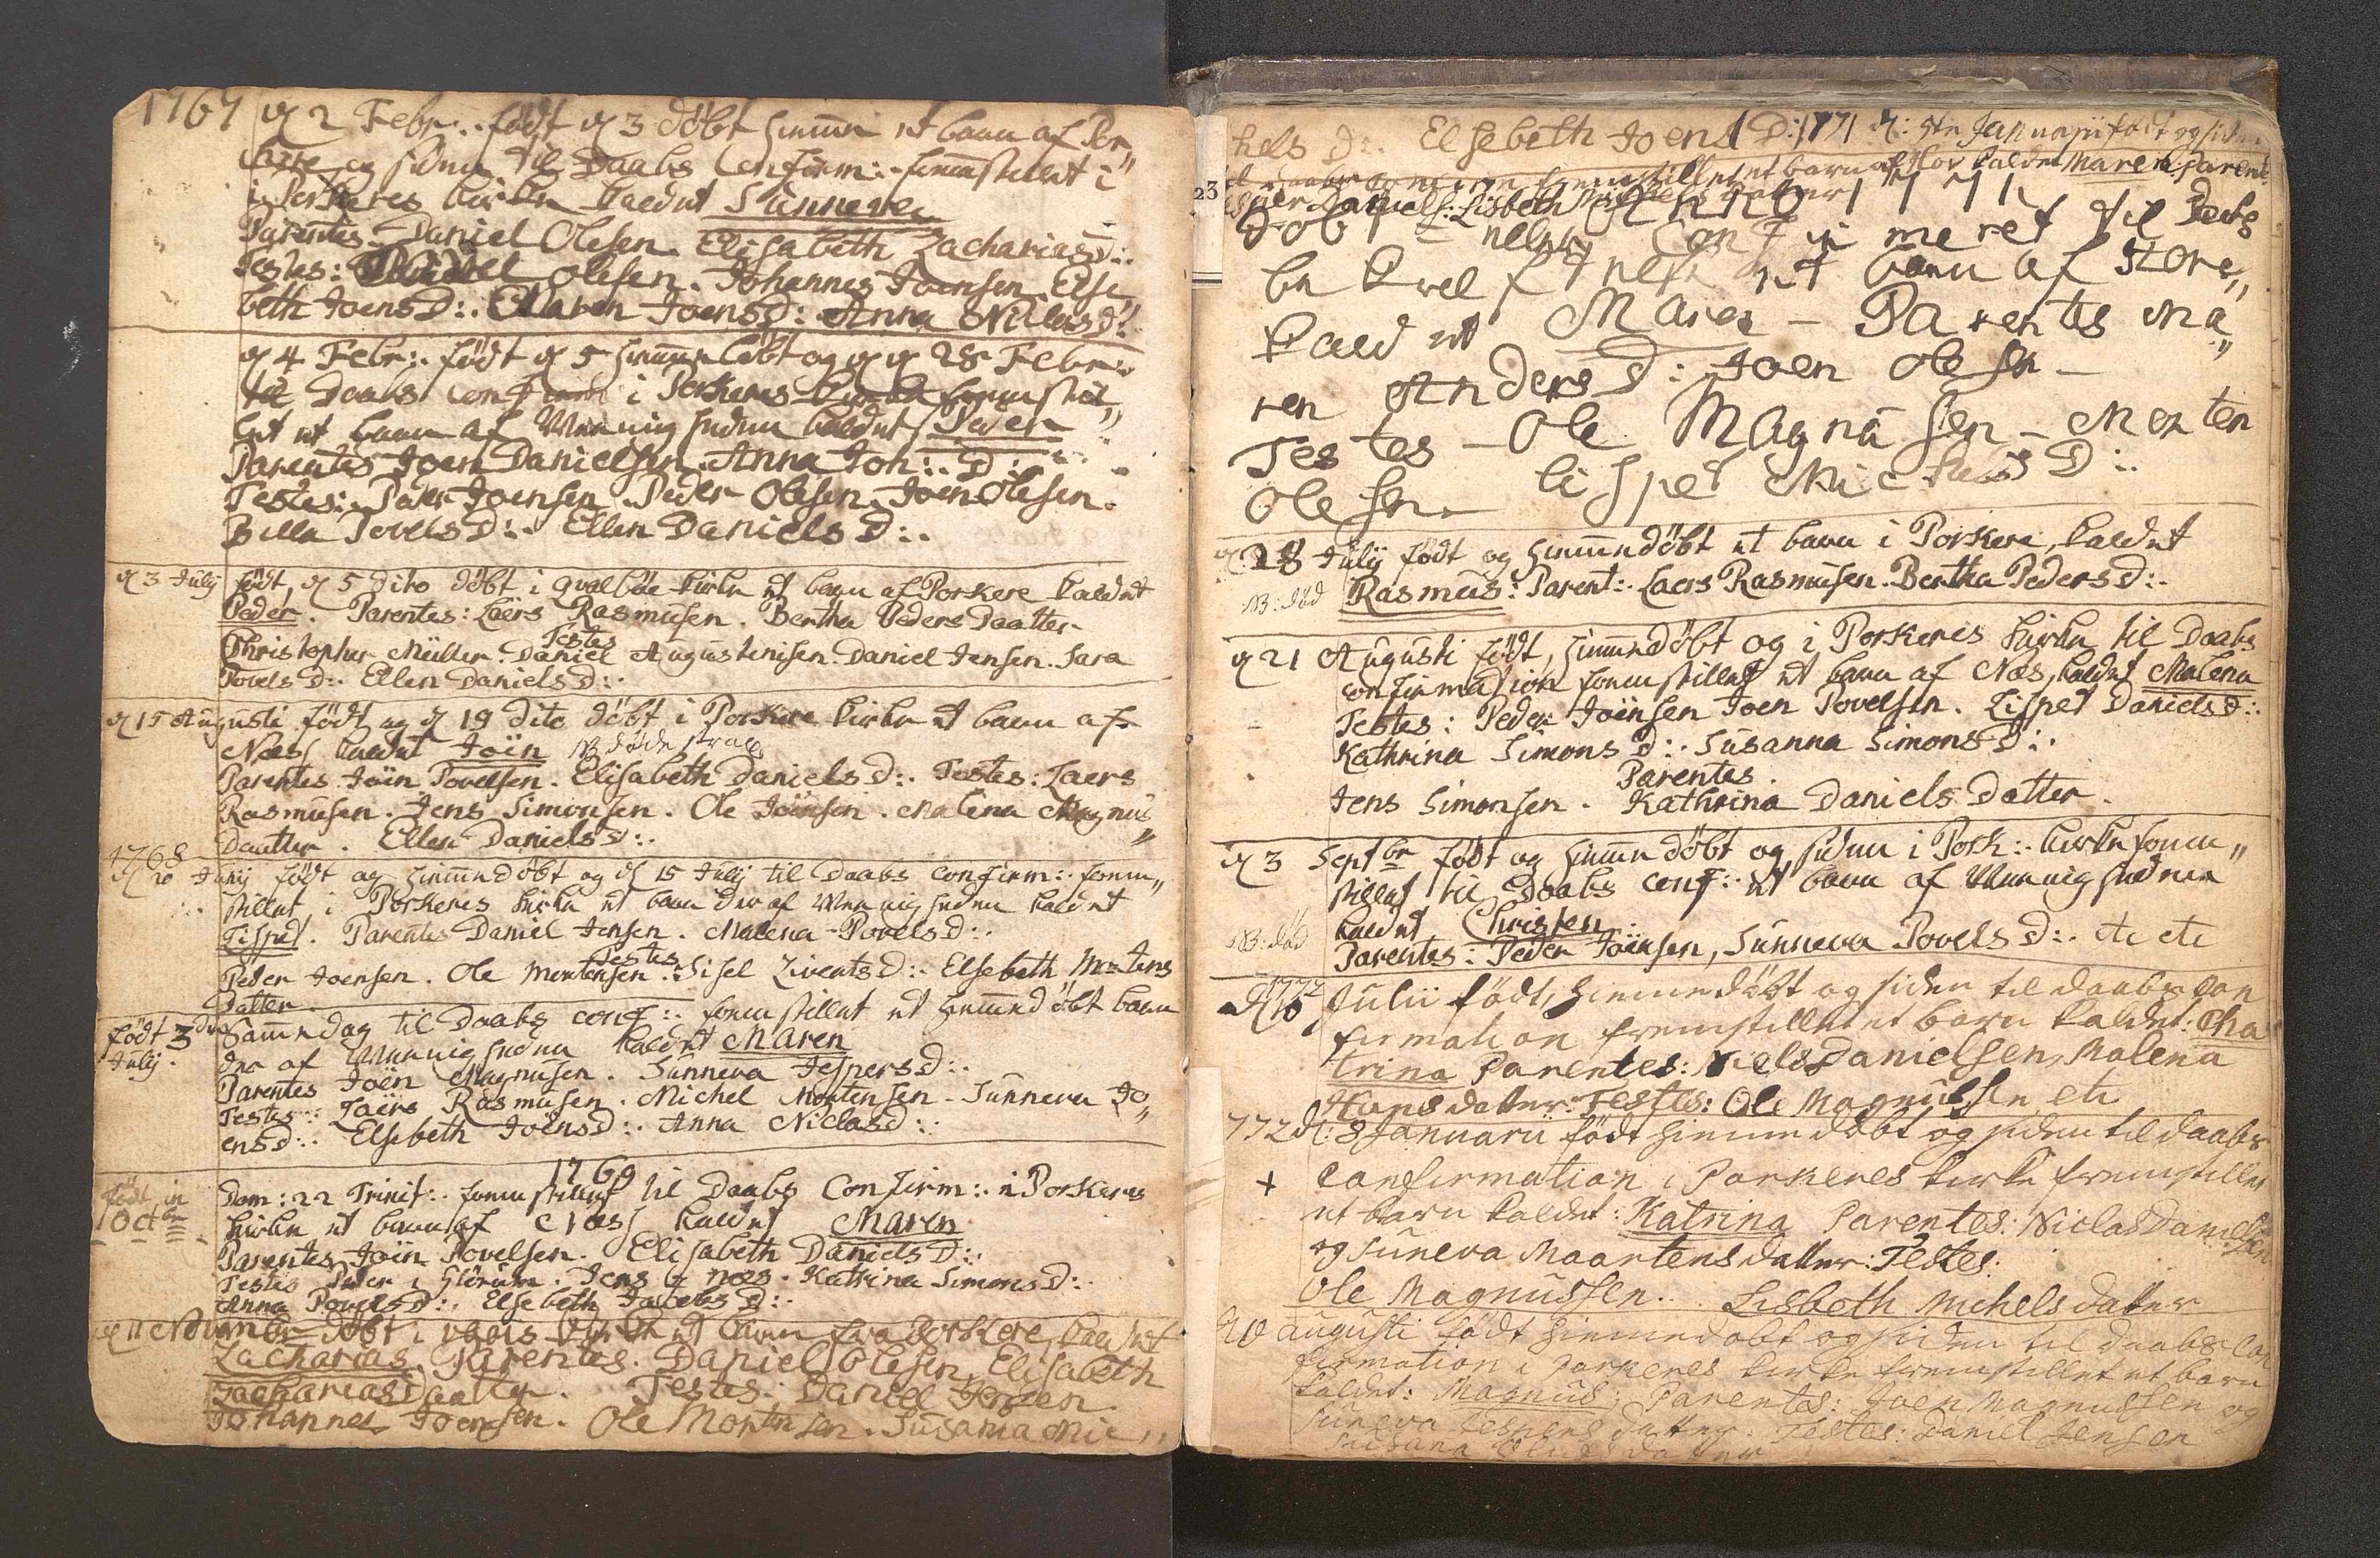 1767 d 2 Febr:. født d 3 døbt hiemme et barn af Por„
kere og siden til Daabs Confirm:. fremstillet i„
i Porkeres kirke kaldet Sunneva
Parentes. Daniel Olesen. Elisabeth Zacharias D:.
Testes: Olesen. Johannes Joensen. Else„
beth Joens D:. Maren Joens D: Anna Niclas D:
d 4 Febr:. født d 5 hiemme døbt og d 28 Febr:.
til Daabs Confirm i Porkeres kirke fremstil„
let et barn af kaldet Peder
Parentes Joen Danielsen. Anna Joh:. D:.
Testes: Peder Joensen. Peder Olesen. Joen Olesen.
Billa Povels D:. Ellen Daniels D:.
d 3 Julij født, d 5 dito døbt i qvalbøe kirke et barn af Porkere kaldet
Peder. Parentes: Laers Rasmusen. Bertha Peders Daatter.
Testes
Christopher Müller. Daniel Augustinisen. Daniel Jensen. Sara
Povels D:. Ellen Daniels D:.
d 15 Augusti født og d 19 dito døbt i Porkere kirke et barn af
Næss kaldet Joën NB døde strax
Parentes Joën Povelsen. Elisabeth Daniels D:. Testes: Laers
Rasmusen. Jens Simonsen. Ole Joensen. Malena Magnus„
Daatter. Ellen Daniels D:.
1768
d 10 Junij født og hiemmedøbt og d 15 Julij til Daabs Confirm:. frem„
stillet i Porkeres kirke et barn der af kaldet
Lisped. Parentes Daniel Jensen. Malena Povels D:.
Testes
Peder Joensen. Ole Mortensen. Sisel Zivents D:. Elsebeth Mortens
Datter.
født 3 Julij. Samme dag til Daabs conf:. fremstillet et hiemmedøbt barn
der af kaldet Maren
Parentes Joën Magnusen. Sunneva Jespers D:.
Testes: Laers Rasmusen. Michel Mortensen - Sunneva Jo„
ens D:. Elsebeth Joëns D:. Anna Niclas D:.
1769
født in Octbr Dom: 22 Trinit:. fremstillet til Daabs Confirm:. i Porkeres
kirke et barn af Næss kaldet Maren
Parentes Joën Povelsen. Elisabeth Daniels D:.
Testes Peder i Glörum. Jens i næs. Katrina Simons D:.
Anna Povels D:. Elsebeth Jacobs D:.
d 11 November døbt i Vaags kirke et barn fra Porkere, kaldet
Zacharias. Parentes. Daniel Olesen, Elisabeth
Zacharias Daatter. Testes: Daniel Jensen.
Johannes Joensen. Ole Mortensen. Susanna Mic„
hels D:. Elsebeth Joens D: 1771 d: 9de Januarii født og siden
til daabs fremstillet et barn af Hov kaldet Maren. Parent
Daniels: Lisbeth datter
Anno 1771
Døbt nelig Confirmeret til Daabs
bekreftnelse et barn af store„
kaldet Maren - Parentes Ma„
ren Anders D: Joen Olesen -
Testes - Ole Magnusen - Morten
Olesen - Lisped Michels D:.
23
d 28 Julij født og hiemmedøbt et barn i Porkere, kaldet
NB: død Rasmus: Parent:. Laers Rasmusen. Bertha Peders D:.
d 21 Augusti født, hiemmedøbt og i Porkeres kirke til Daabs
confirmation fremstillet et barn af Næs, kaldet Malena
Testes: Peder Joënsen Joen Povelsen. Lisped Daniels D:.
Kathrina Simons D:. Susanna Simons D:.
Parentes.
Jens Simonsen. Kathrina Daniels Datter.
d 3 Septbr født og hiemmedøbt og siden i Pork:. kirke frem„
stillet til Daabs conf:. et barn af
kaldet Christen
NB: død Parentes: Peder Joënsen, Sunneva Povels D:. etc etc
1772
d 10 Julii født, hiemmedøbt og siden til daabs Con
firmation fremstillet et barn kaldet: Cha
trina Parentes: Niels Danielsen, Malena
Hansdatter: Testes: Ole Magnussen etc
772 d: 8 Januarii født hiemmedøbt og siden til daabs
+ Confirmation i Porkeres kirke fremstillet
et barn kaldet: Katrina Parentes: Niclas Danielsen
og Suneva Maartensdatter: Testes:
Ole Magnussen. Lisbeth Michelsdatter
d 10 augusti født hiemmedøbt og siden til daabs Con
firmation i Porkeres kirke fremstillet et barn
kaldet: Magnus: Parentes: Joen Magnussen og
Suneva Jespersdatter. Testes: Daniel Jensen
Susana datter